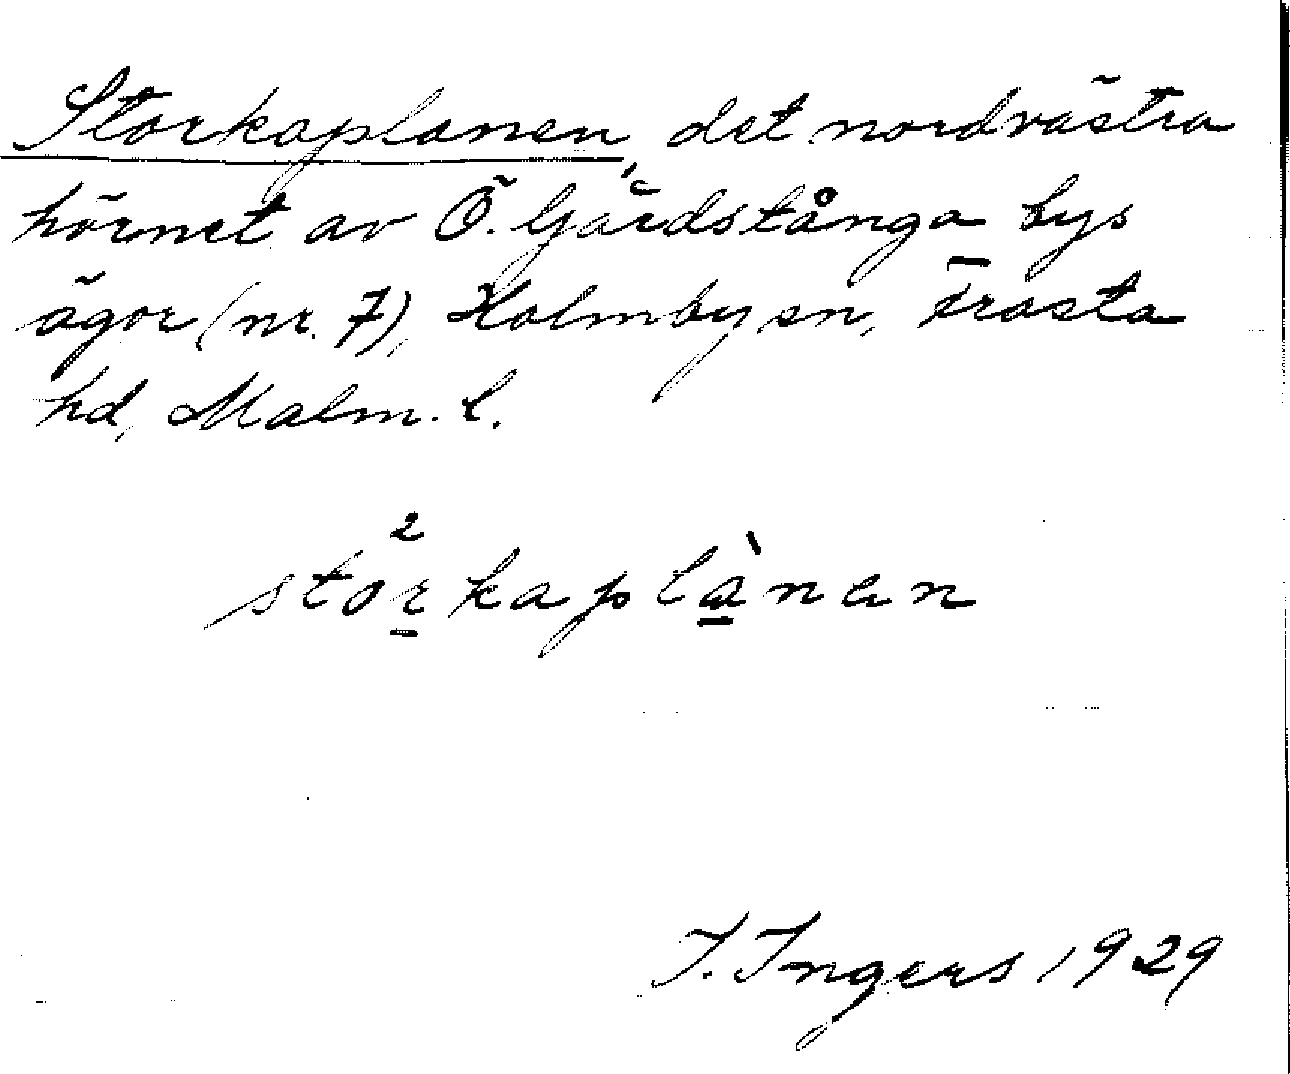 Storkaplanen, det nordvästra
hörnet av Ö. Gårdstånga bys
ägor (nr. 7), Holmby sn, Frosta
hd, Malm. l.
storkaplànen
I. Ingers 1929